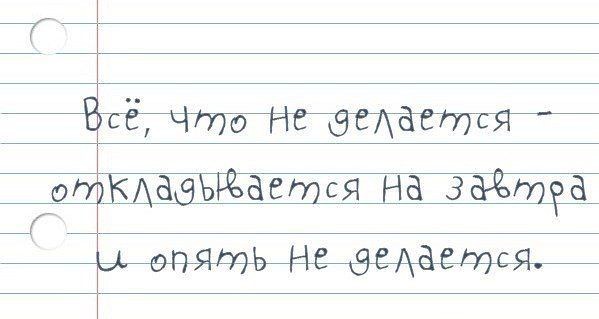 Всё, что не делается -
откладывается на завтра
и опять не делается.